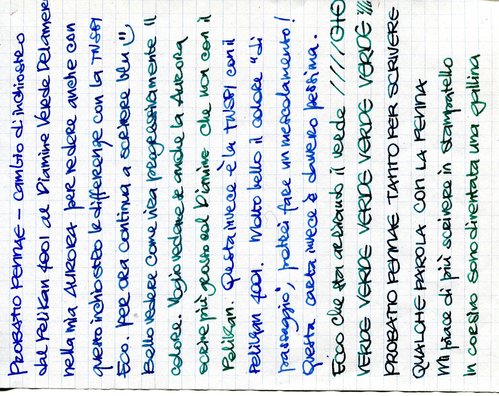 PROBATIO PENNAE - cambio di inchiostro
dal Pelikan 4001 al Diamine Verde Delamere
nella mia AURORA per vedere anche con
questo inchiostro le differenze con la TWSBI
Ecco. per ora continua a scrivere blu :)
Bello vedere come vira progressivamente il
colore. Voglio vedere se anche la Aurora
scrive più grasso col Diamine che non con il
Pelikan. Questa invece è la TWSBI con il
Pelikan 4001. Molto bello il colore "di
passaggio", potrei fare un mescolamento!
Questa carta invece è davvero pessima.
ECCO che sta arrivando il verde /////
VERDE VERDE VERDE VERDE VERDE !!!!
PROBATIO PENNAE TANTO PER SCRIVERE
QUALCHE PAROLA CON LA PENNA
Mi piace di più scrivere in stampatello
in corsivo sono diventata una gallina